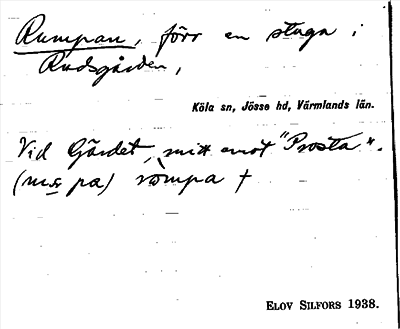 Rumpan, förr en stuga i
Rudsgården,
Köla sn, Jösse hd, Värmlands län.
Vid Gärdet, mitt emot "Prosta".
(ms pa) römpa †
ELOV SILFORS 1938.